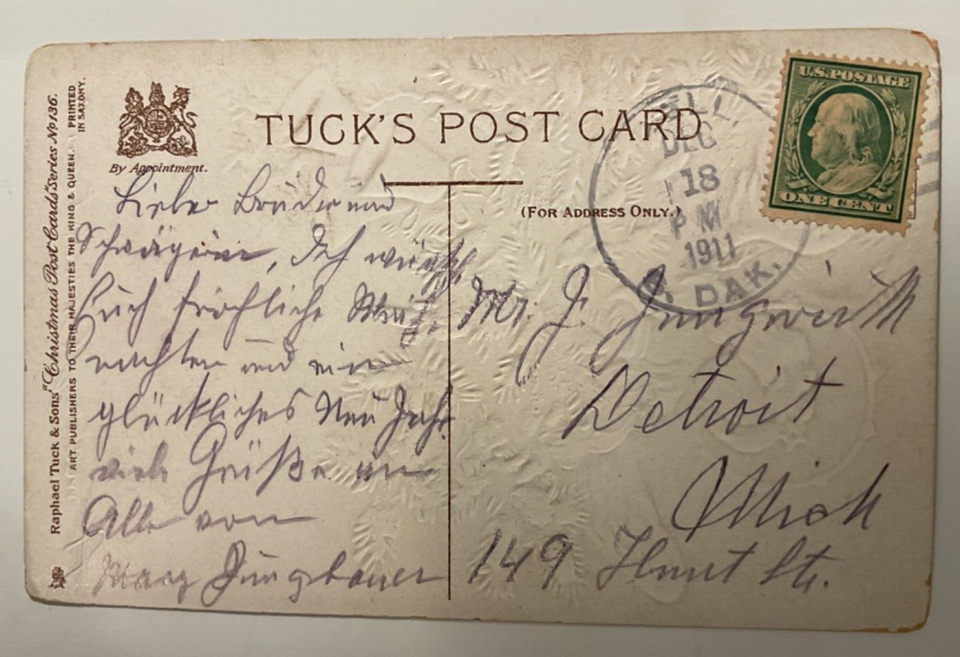 Raphael Tuck & Sons' "Christmas Post Cards" Series No 136.
ART PUBLISHERS TO THEIR MAJESTIES THE KING & QUEEN.
PRINTED
IN SAXONY.
By Appointment.
TUCK'S POST CARD
(FOR ADDRESS ONLY.)
U.S. POSTAGE
ONE CENT
DEC
18
PM
1911
DAK.
Lieber Bruder und
Schwägerin, Ich wünsche
Euch fröhliche Weih-
nachten und ein
glückliches Neu Jahr.
viele Grüße an
Alle von
Jungbauer
Mr. J. Jungwirth
Detroit
Mich
149 Hunt St.